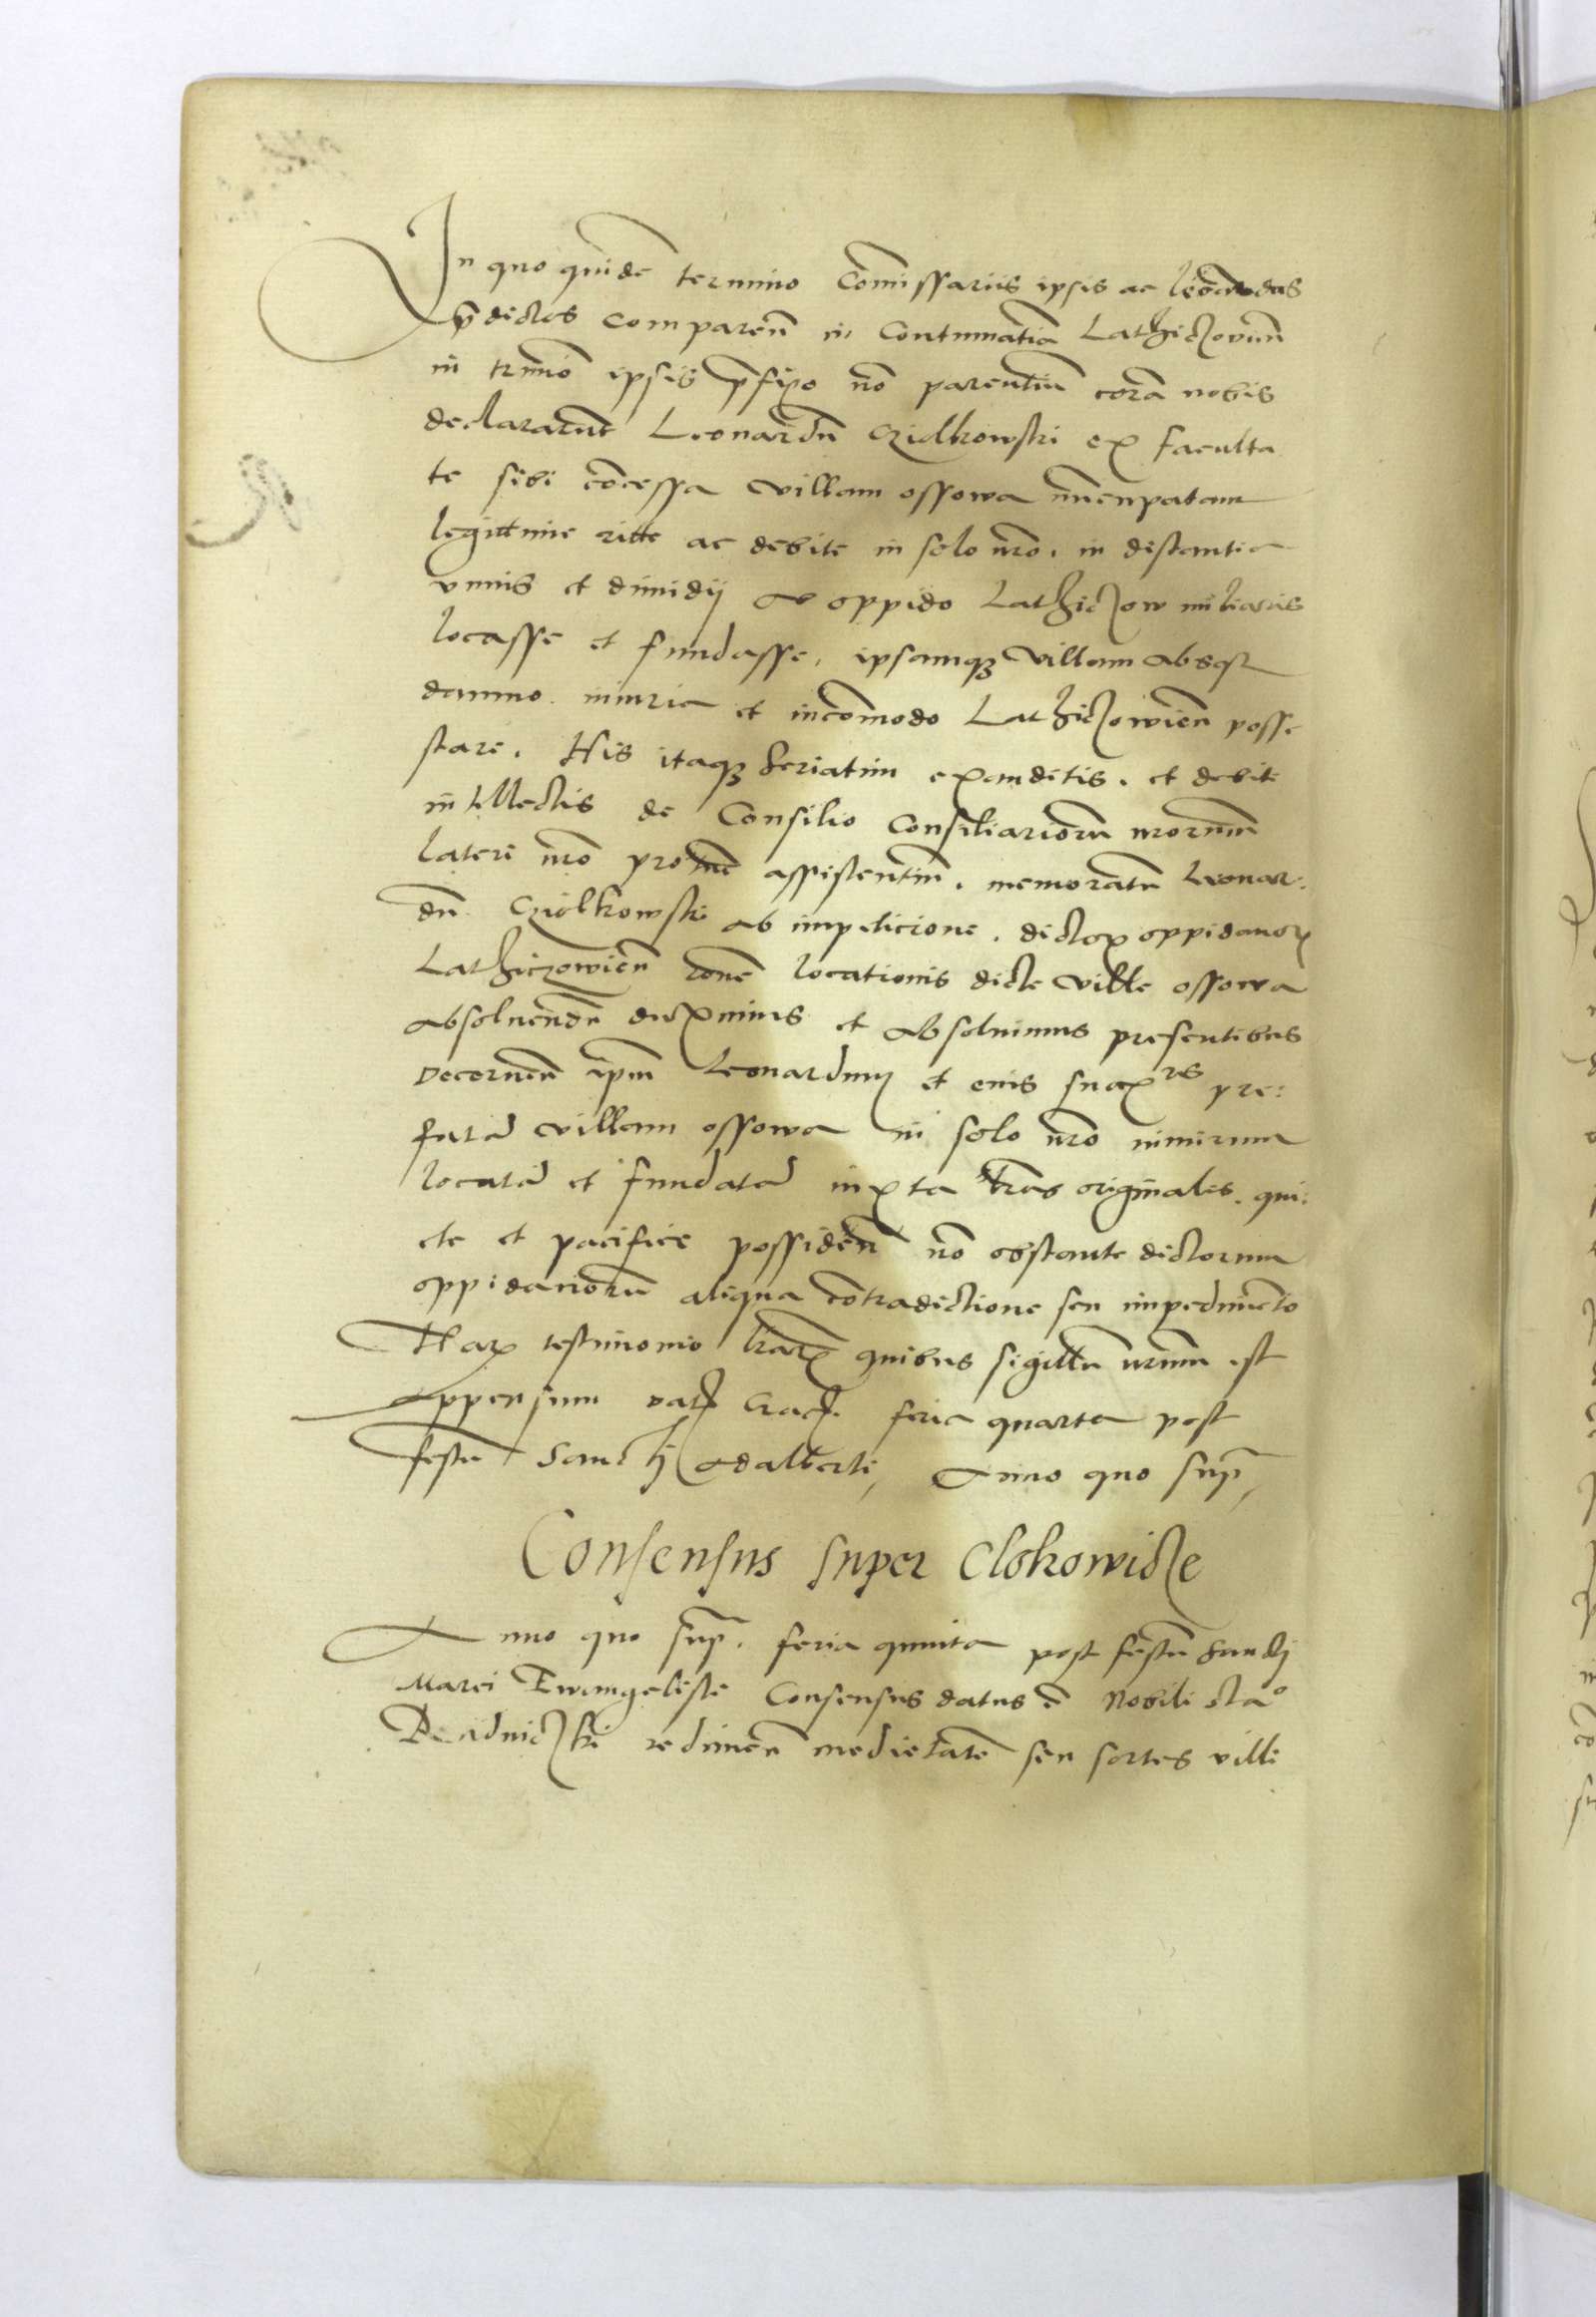 In quo quidē termino Cōmissariis ipsis ac
p̄dictos comparen̄ in Contumatiā Lathiczovien̄
in tr̄mīo ipsis p̄fixo nō parentiū corā nobis
declararūt Leonardū Cziolkowski ex faculta
te sibi cōcessa villam ossowa nuncupatam
legittime ritte ac debite in solo nr̄o. in distantia
vnius et dimidij ab oppido Lathiczow miliaris
locasse et fundasse, ipsamq₃ villam absq₃
damno. iniuria et incōmodo Lathiczowien̄ posse
stare. His itaq₃ seriatim exauditis. et debite
intellectis de Consilio Consiliariorū nr̄orum
latere nr̄o pro tūc assistentiū. memoratū Leonar:
dū Cziolkowski ab impeticione. dictoꝝ oppidanoꝝ
Lathiczowien̄ rōne locationis dicte ville ossowa
absoluendū duximus et absoluimus presentibus
Decernen̄ ip̄m Leonardum et eius suc̄res pre:
fatā villam ossowa in solo nr̄o nimirum
locatā et fundatā iuxta lr̄as originales. qui:
ete et pacifice possiden̄ nō obstante dictorum
oppidanorū aliqua cōtradictione seu impedimēto
Haꝝ testimonio lr̄aꝝ quibus sigillū nr̄um est
appensum Dat̄ Crac̄. feria quarta post
festū Sancti Adalberti, Anno quo sup̄,
Consensus super Clokowicze
Anno quo sup̄. feria quinta post festū sancti
Marci Ewangeliste Consensus datus ē Nobili Sta°
redimen̄ medietatē seu sortes ville